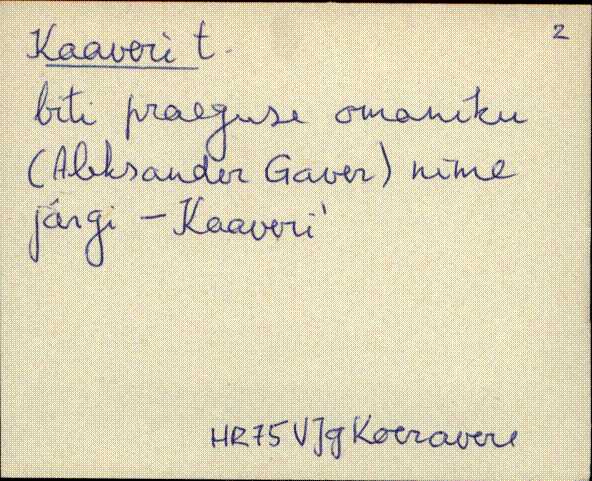 Kaaveri t. 2
biti praeguse omaniku
(Aleksander Gaver) nime
järgi – Kaaveri'
HR75 VJg Koeravere